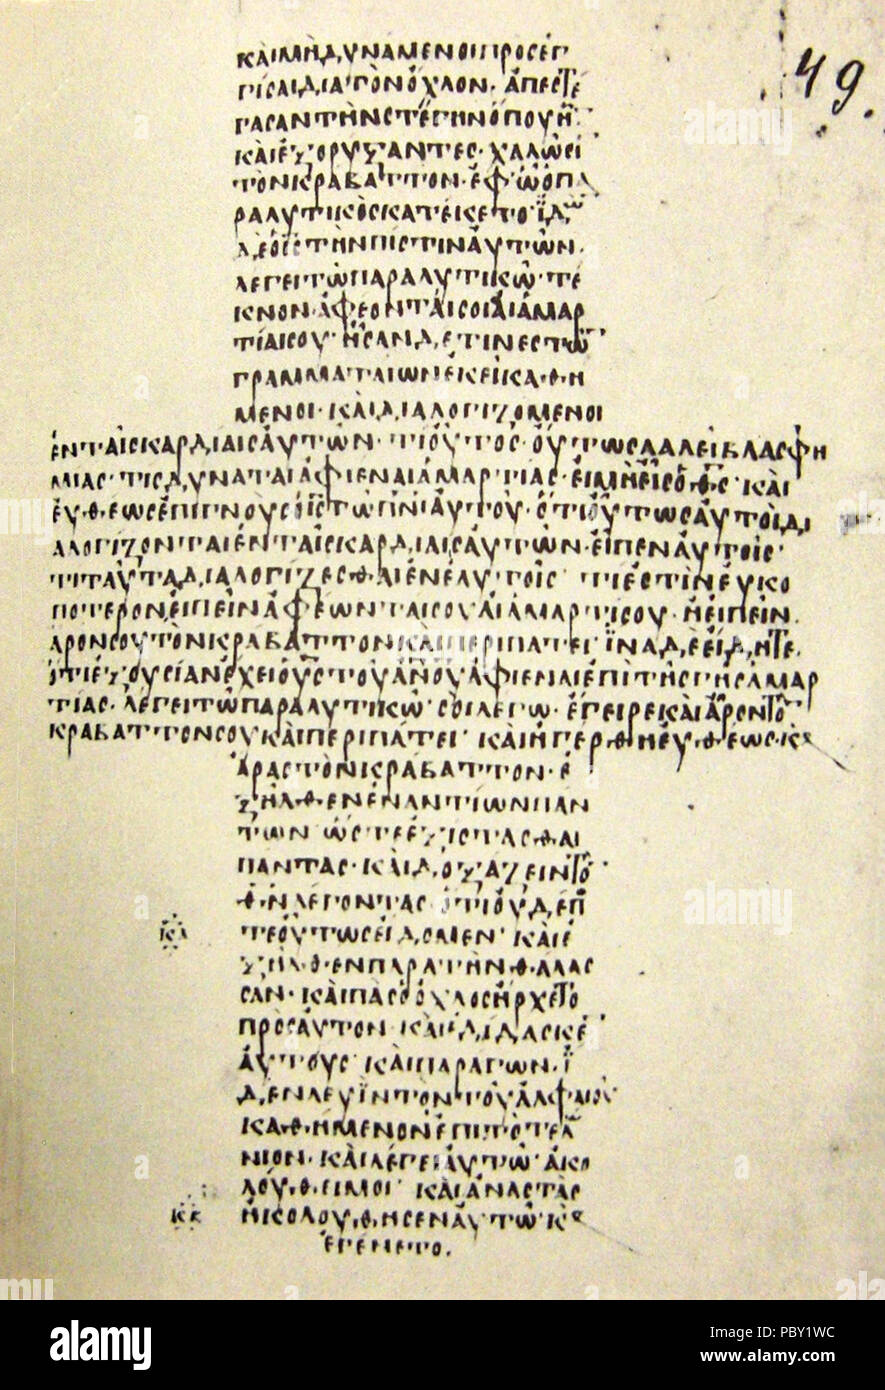 49.
ΚΑῚΜῊΔΥΝΑΜΕΝΟΙΠΡΟΣΕΓ
ΓΙΣΑΙΔΙΑΤὸΝὌΧΛΟΝ· ἈΠΕΣΤΕ
ΓΑΣΑΝΤΗΝΣΤΕΓΗΝὍΠΟΥΗ̄
ΚΑῚἘΞΟΡΥΞΑΝΤΕΣ· ΧΑΛῶΣΙ
ΤῸΝΚΡΑΒΑΤΤΟΝ· ἘΦ ὯὉΠΑ
ΡΑΛΥΤΙΚῸΣΚΑΤΕΚΕΤΟ· ἸΔῺ̄
ΔΕὉῙΣΤῊΝΠΙΣΤΙΝΑΥΤῶΝ·
ΛΕΓΕΙΤῶΠΑΡΑΛΥΤΙΚῶ· ΤΕ
ΚΝΟΝ· ἈΦΕΟΝΤΑΙΣΟΙΑΙἉΜΑΡ
ΤΙΑΙΣΟΥ· ἮΣΑΝΔΕΤΙΝΕΣΤῶ̄
ΓΡΑΜΜΑΤΑΙΩΝἘΚΕΙΚΑΘΗ
ΜΕΝΟΙ· ΚΑῚΔΙΑΛΟΓΙΖΟΜΕΝΟΙ
ἘΝΤΑῖΣΚΑΡΔΙΑΙΣΑΥΤῶΝ· ΤΙΟΥΤΟΣ· ΟὝΤΩΣΛΑΛΕῖΒΛΑΣΦΗ
ΜΙΑΣ· ΤΙΣΔΥΝΑΤΑΙἈΦΙΕΝΑΙἉΜΑΡΤΙΑΣ· ἘΙΜῊἙΙΣὉΘ̄Σ· ΚΑῚ
ἘΥΘΕΩΣἘΠΙΓΝΟΥΣὉῙΣΤῶΠΝ̄ΙΑΥΤΟΥ· ὍΤΙΟΥΤΩΣΑΥΤΟῚΔΙ
ΑΛΟΓΙΖΟΝΤΑΙἘΝΤΑῖΣΚΑΡΔΙΑΙΣΑΥΤῶΝ· ἘΙΠΕΝΑΥΤΟῖΣ·
ΤΙΤΑΥΤΑΔΙΑΛΟΓΙΖΕΣΘΑΙἘΝἘΑΥΤΟῖΣ· ΤΙἘΣΤῚΝἘΥΚΟ
ΠΟΤΕΡΟΝἘΙΠΕῖΝἈΦΕΩΝΤΑΙΣΟΥΑΙἉΜΑΡΤΙΣΟΥ· ἨἘΙΠΕῖΝ·
ἈΡΟΝΣΟΥΤῸΝΚΡΑΒΑΤΤΟΝΚΑῚΠΕΡΙΠΑΤΕΙ· ἽΝΑΔΕΕΙΔΗΤΕ·
ὍΤΙἘΞΟΥΣΙΑΝἘΧΕΙὉῩΣΤΟΥἈΝ̄ΟΥἈΦΙΕΝΑΙἘΠῚΤῆΣΓῆΣἉΜΑΡ
ΤΙΑΣ· ΛΕΓΕΙΤῶΠΑΡΑΛΥΤΙΚῶ· ΣΟΙΛΕΓΩ· ἘΓΕΙΡΕΚΑῚἎΡΟΝΤΟ̄
ΚΡΑΒΑΤΤΟΝΣΟΥΚΑῚΠΕΡΙΠΑΤΕΙ· ΚΑῚΗΓΕΡΘΗἘΥΘΕΩΣ· Κϗ
ἌΡΑΣΤῸΝΚΡΑΒΑΤΤΟΝ· Ἐ
ΞΗΛΘΕΝἘΝΑΝΤΙΩΝΠΑΝ
ΤΩΝ ὩΣΤΕἘΞΙΣΤΑΣΘΑΙ
ΠΑΝΤΑΣ· ΚΑῚΔΟΞΑΖΕΙΝΤΟ̄
Θ̄ΝΛΕΓΟΝΤΑΣ· ὍΤΙΟΥΔΕΠ̄
ΤΕΟΥΤΩΣΕΙΔΟΜΕΝ· ΚΑῚἘ
ΚΑ
ΞΗΛΘΕΝΠΑΡΑΤῊΝΘΑΛΑΣ
ΣΑΝ· ΚΑῚΠΑΣὉὌΧΛΟΣἨΡΧΕΤΟ
ΠΡῸΣΑΥΤΟΝ· ΚΑῚἘΔΙΔΑΣΚΕ̄
ΑΥΤΟΥΣ· ΚΑῚΠΑΡΑΓΩΝ· Ἰ̄
ΔΕΝΛΕΥῚΝΤΟΝΤΟΥἈΛΦΑΙΟΥ
ΚΑΘΗΜΕΝΟΝἘΠῚΤῸΤΕΛ
ΝΙΟΝ· ΚΑῚΛΕΓΕΙΑΥΤῶ· ἈΚΟ
ΛΟΥΘΕΙΜΟΙ· ΚΑῚἈΝΑΣΤΑΣ
ΚΒ
ΗΚΟΛΟΥΘΗΣΕΝΑΥΤῶ· Κϗ
ἘΓΕΝΕΤΟ.
alamy
Image ID: PBY1WC
www.alamy.com